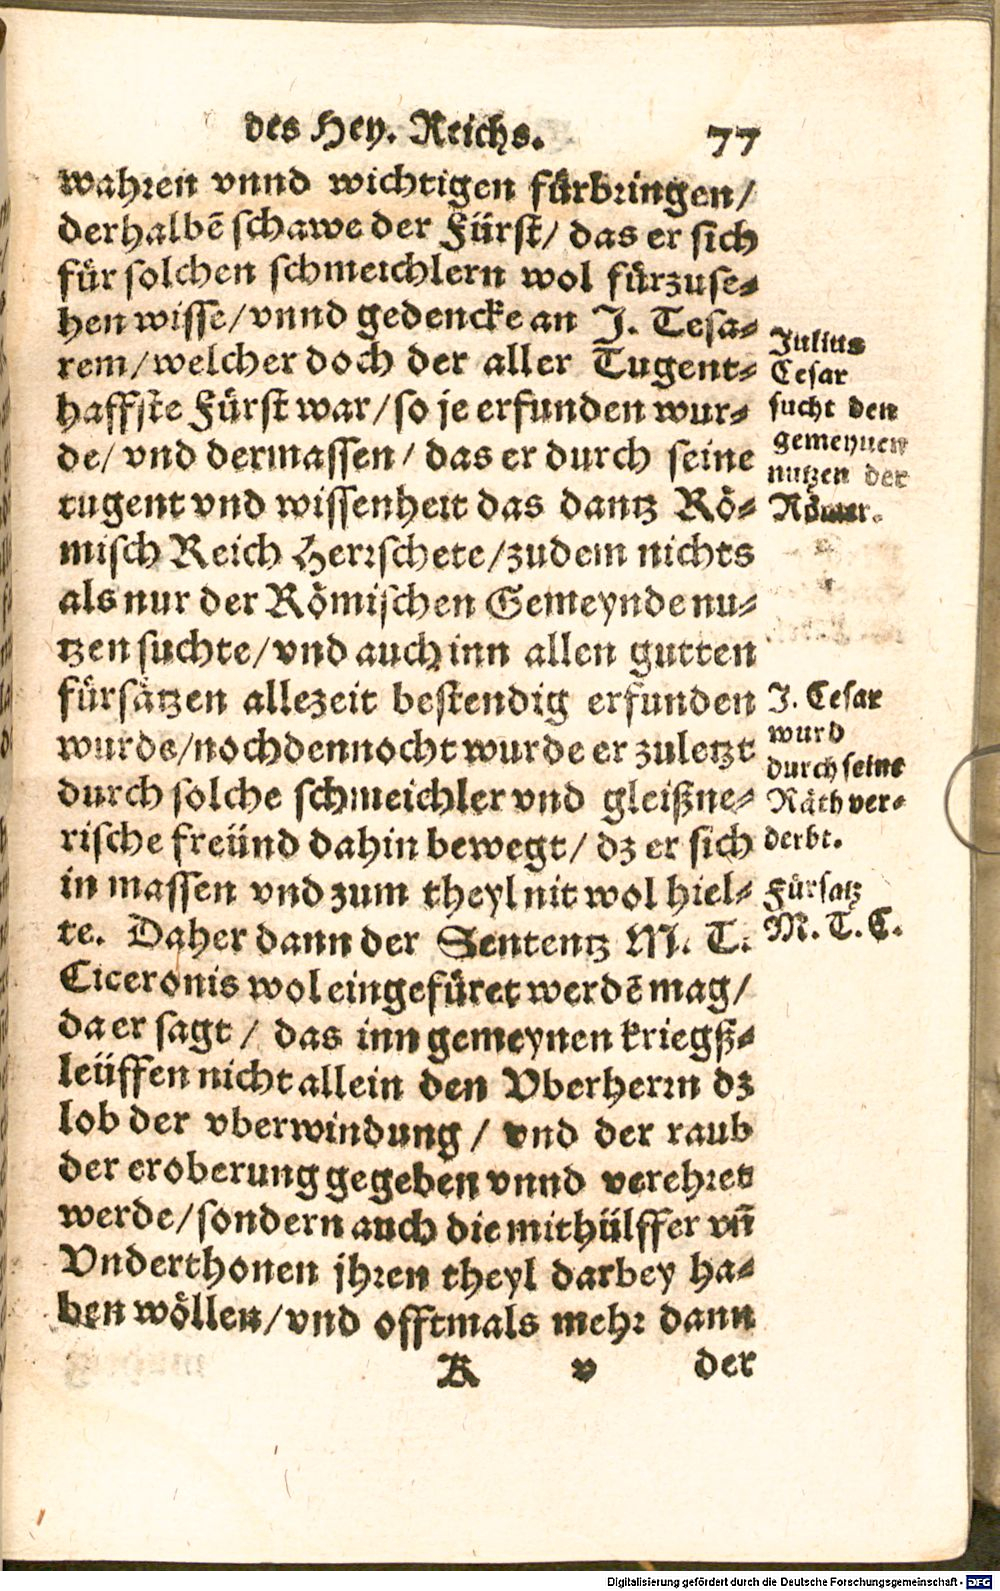 des Hey. Reichs. 77
wahren vnnd wichtigen fürbringen/
derhalbē schawe der Fürst/ das er sich
für solchen schmeichlern wol fürzuse-
hen wisse/vnnd gedencke an J. Cesa-
rem/welcher doch der aller Tugent-
haffste Fürst war/so je erfunden wur-
de/ vnd dermassen/ das er durch seine
tugent vnd wissenheit das dantz Rö-
misch Reich Herrschete/zudem nichts
als nur der Römischen Gemeynde nu-
tzen suchte/vnd auch inn allen gutten
fürsätzen allezeit bestendig erfunden
wurde/nochdennocht wurde er zuletzt
durch solche schmeichler vnd gleißne-
rische freünd dahin bewegt/ dz er sich
in massen vnd zum theyl nit wol hiel-
te. Daher dann der Sententz M. T.
Ciceronis wol eingefüret werdē mag/
da er sagt/ das inn gemeynen kriegß-
leüffen nicht allein den Vberherrn dz
lob der vberwindung/ vnd der raub
der eroberung gegeben vnnd verehret
werde/sondern auch die mithülffer vñ
Vnderthonen jhren theyl darbey ha-
ben wöllen/vnd offtmals mehr dann
K v der
Julius
Cesar
sucht den
gemeynen
nutzen der
Römer.
J. Cesar
wurd
durch seine
Räth ver-
derbt.
Fürsatz
M. T. C.
Digitalisierung gefördert durch die Deutsche Forschungsgemeinschaft - DFG